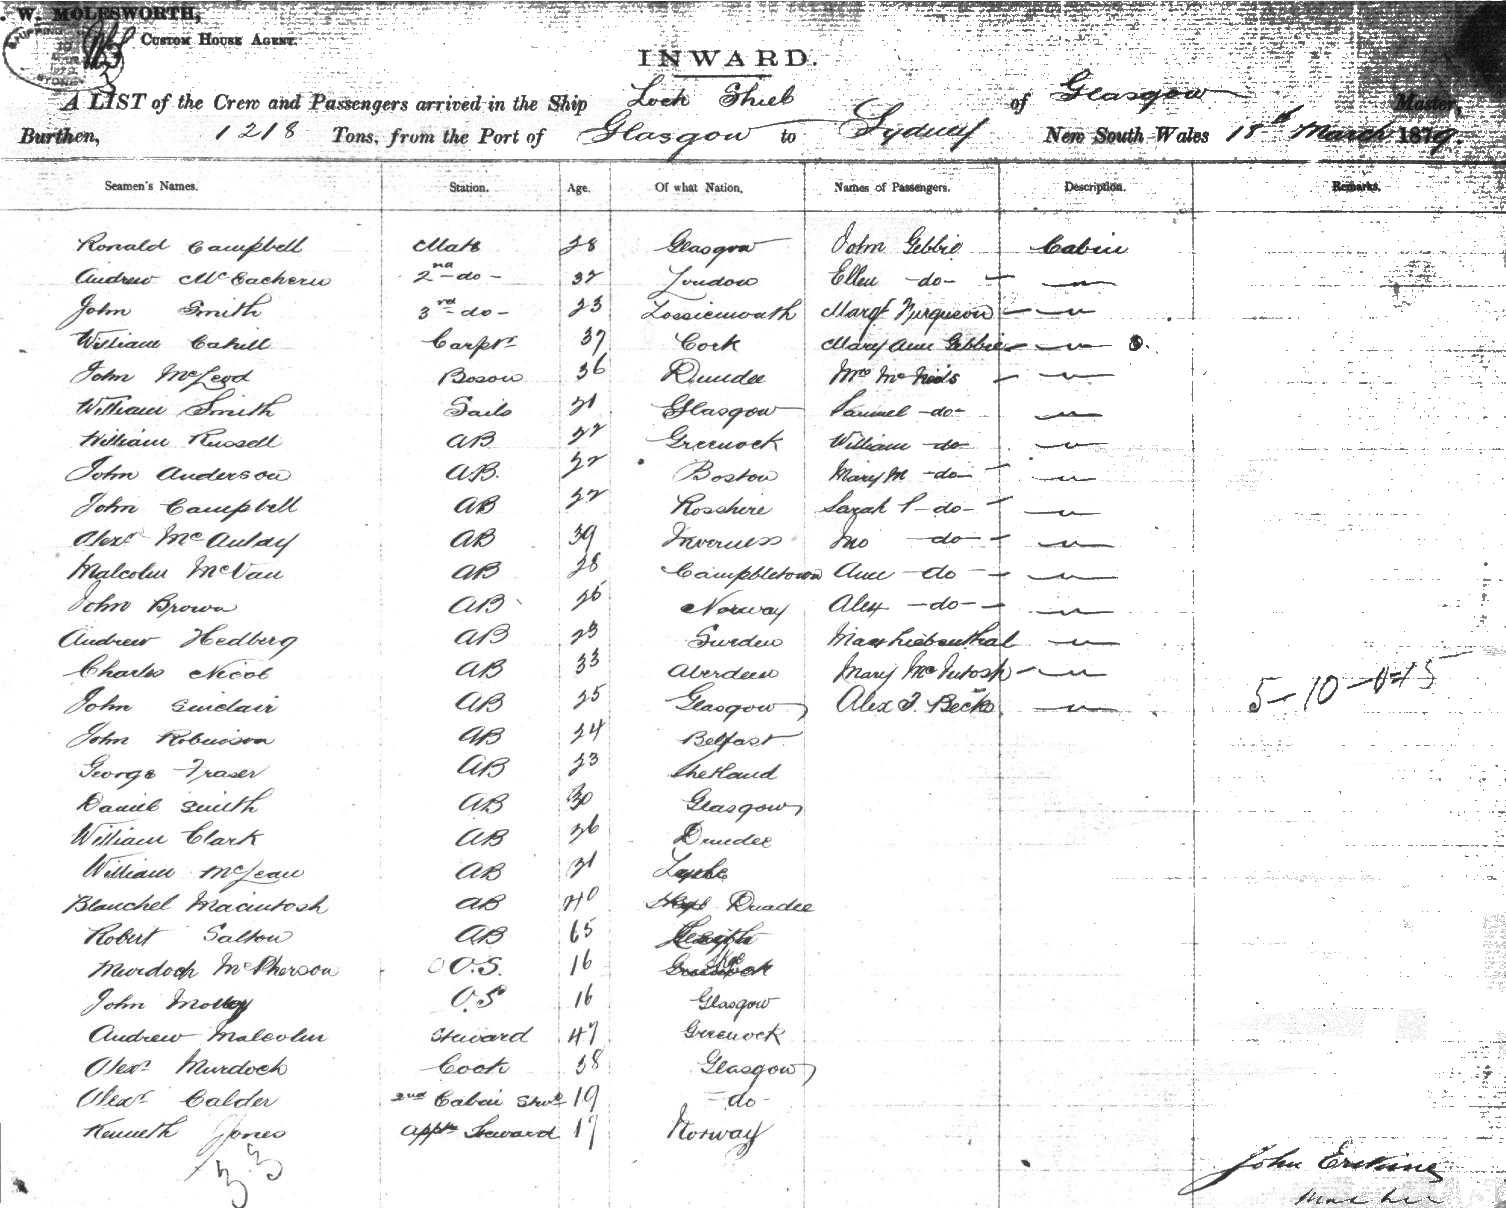 W. MOLESWORTH,
CUSTOM HOUSE AGENT.
INWARD.
A LIST of the Crew and Passengers arrived in the Ship Loch Shiel of Glasgow Master,
Burthen, 1218 Tons, from the Port of Glasgow to Sydney New South Wales 18th March 1879.
Seamen's Names. Station. Age. Of what Nation. Names of Passengers. Description. Remarks.
Ronald Campbell Mate 28 Glasgow John Gebbie Cabin
Andrew McEachern 2nd -do- 32 London Ellen -do- — "
John Smith 3rd -do- 23 Lossiemouth Margt Ferguson — "
William Cahill Carptr 37 Cork Mary Ann Gebbie — "
John McLeod Boson 36 Dundee Mrs — "
William Smith Sails 21 Glasgow Samuel -do- "
William Russell AB 22 Greenock William -do- "
John Anderson AB. 22 Boston Mary M -do- — "
John Campbell AB 22 Rosshire Sarah -do- — "
Alexr McAulay AB 39 Inverness Jno -do- — "
Malcolm McVan AB 28 Campbletown Ann -do- — "
John Brown AB 26 Norway Alex -do- — "
Andrew Hedberg AB 23 Sweden "
Charles Nicol AB 33 Aberdeen Mary McIntosh — "
John Sinclair AB 25 Glasgow Alex Beck "
5-10-0
John Robinson AB 24 Belfast
George Fraser AB 23 Shetland
Daniel Smith AB 30 Glasgow
William Clark AB 26 Dundee
William McLean AB 21
Blanchel Macintosh AB 40 Dundee
Robert Salton AB 65
Murdoch McPherson O.S. 16
John Molloy O.S 16 Glasgow
Andrew Malcolm Steward 47 Greenock
Alexr Murdoch Cook 38 Glasgow
Alexr Calder 2nd Cabin Stwd 19 -do-
Kenneth Jones Apptn Steward 17 Norway
33
John Erskine
Master